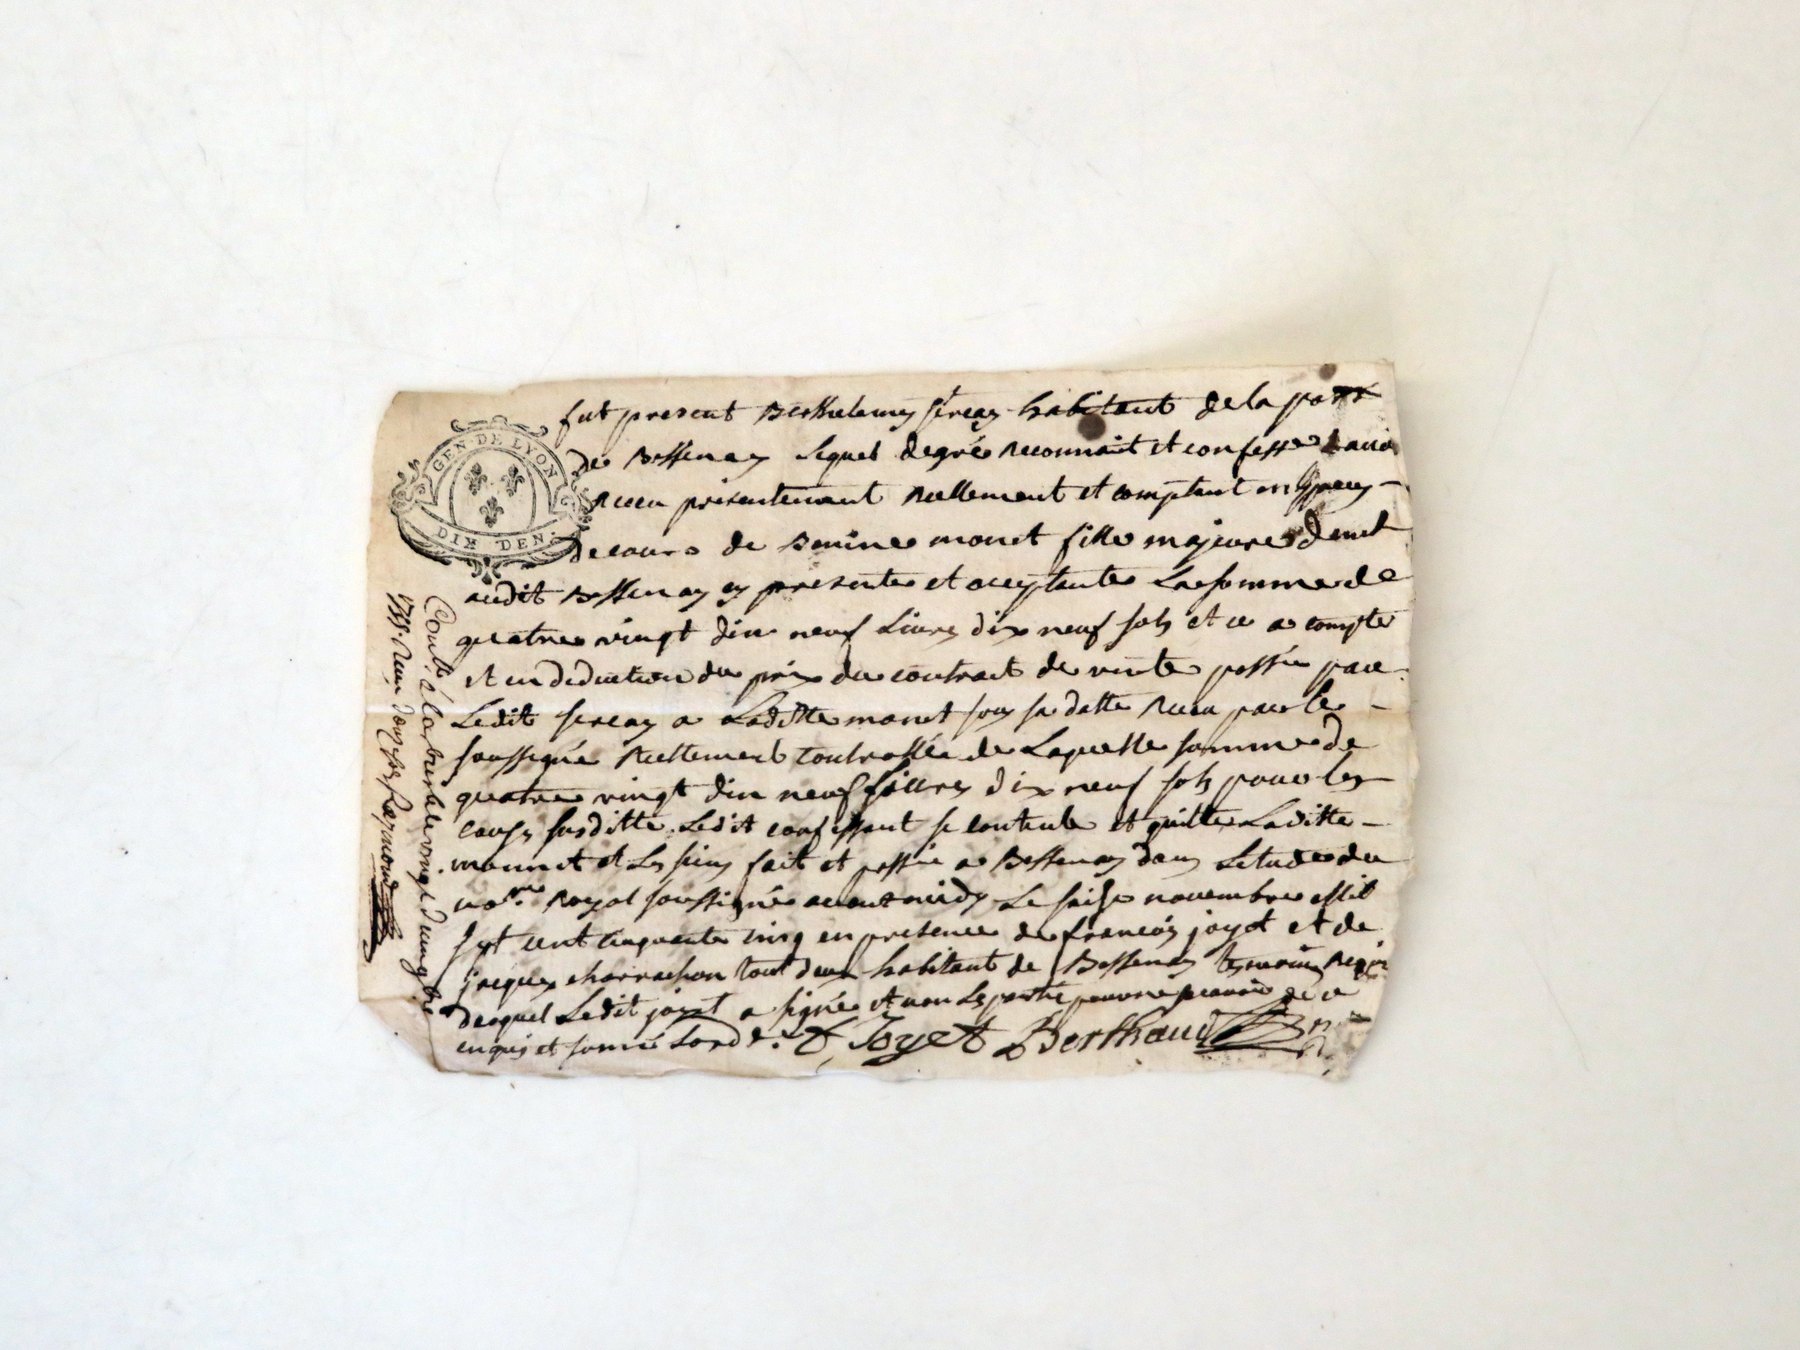 GEN. DE LYON
DIX DEN.
fut present Berthelemy habitant de la
de Bessenay lequel degré reconnait et confesse
receu présentement reellement et comptant en
de cours de monet fille majeure
audit Bessenay presente et acceptante la somme de
quatre vingt dix neuf livres dix neuf sols et ce a compte
et en deduction du prix du contract de vente passée par
ledit a laditte monet sous sa datte receu par le
soussigné reellement controllée de laquelle somme de
quatre vingt dix neuf livres dix neuf sols pour les
causes susditte ledit confessant se contente et quitte laditte
monnet et les siens fait et passée a Bessenay dans letude du
no.re Royal soussigné avant midy le saise novembre mil
sept cent cinquante cinq en presence de francois joyet et de
jacques charrachon tout deux habitant de Bessenay temoins requis
desquel ledit joyet a signé et non les partie pour ne scavoir de ce
enquis et sommé F Joyet Berthaud
1755. Raymond